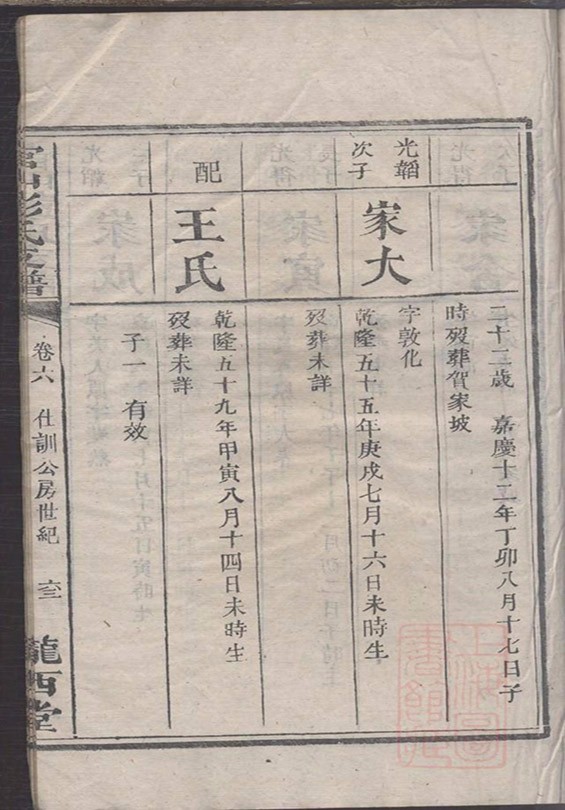 二十二歲　嘉慶十二年丁卯八月十七日子
時歿葬賀家坡
光韜
次子
家大
字敦化
乾隆五十五年庚戌七月十六日未時生
歿葬未詳
配
王氏
乾隆五十九年甲寅八月十四日未時生
歿葬未詳
子一 有效
彭氏支譜
卷六 仕訓公房世紀 六三
隴西堂